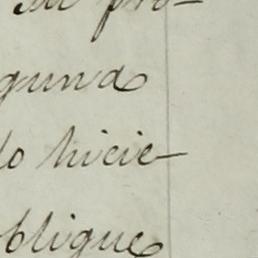 pro-
gunda
lo hicie-
blique